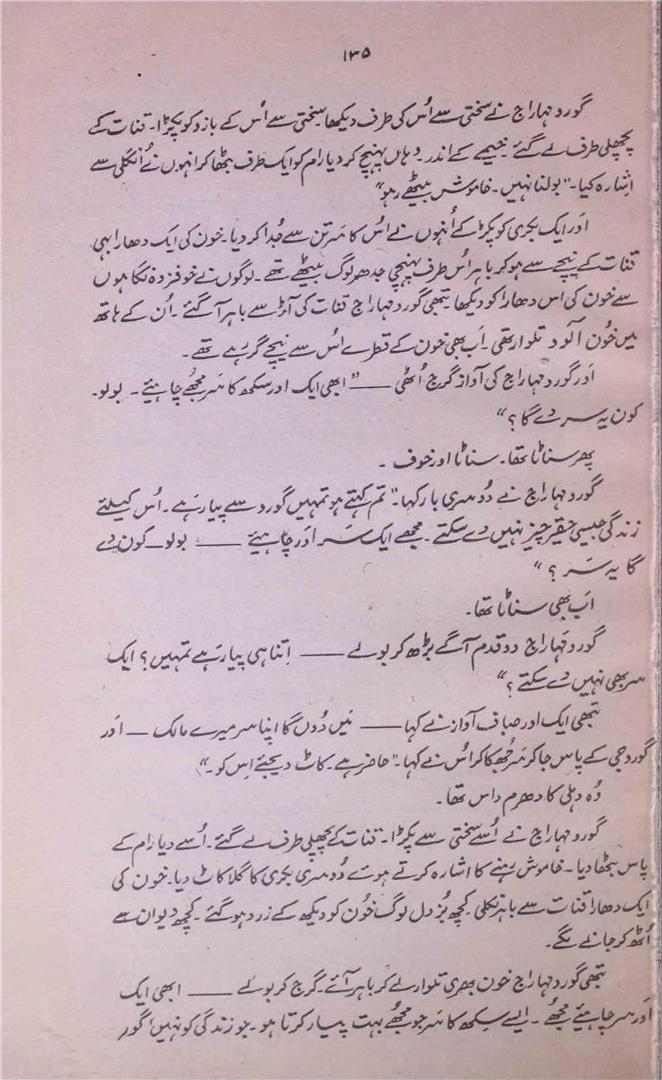 ۱۳۵
گورو مہاراج نے سختی سے اُس کی طرف دیکھا۔ سختی سے اُس کے بازو کو پکڑا۔ قنات کے
پچھلی طرف لے گئے۔ خیمے کے اندر وہاں پہنچ کر دیا رام کو ایک طرف بٹھا کر انہوں نے اُنگلی سے
اِشارہ کیا۔ "بولنا نہیں۔ خاموش بیٹھے رہو"
اَور ایک بکری کو پکڑ کے اُنہوں نے اُس کا سَر تن سے جُدا کر دیا۔ خون کی ایک دھارا بہی
قنات کے نیچے سے ہو کر باہر اُس طرف پہنچی جدھر لوگ بیٹھے تھے۔ لوگوں نے خوفزدہ نگاہوں
سے خون کی اس دھارا کو دیکھا۔ تبھی گورو مہاراج قنات کی آڑ سے باہر آ گئے۔ اُن کے ہاتھ
میں خُون آلود تلوار تھی۔ اَب بھی خون کے قطرے اُس سے نیچے گر رہے تھے۔
اَور گورو مہاراج کی آواز گرج اُٹھی —— "ابھی ایک اور سکھ کا سَر مجھے چاہیئے۔ بولو۔
کون یہ سر دے گا؟"
پھر سناٹا تھا۔ سناٹا اور خوف۔
گورو مہاراج نے دُوسری بار کہا۔ "تم کہتے ہو تمہیں گورو سے پیار ہے۔ اُس کیلئے
زندگی جیسی حقیر چیز نہیں دے سکتے۔ مجھے ایک سَر اَور چاہیئے —— بولو۔ کون دے
گا یہ سَر؟"
اَب بھی سناٹا تھا۔
گورو مہاراج دو قدم آگے بڑھ کر بولے —— اِتنا ہی پیار ہے تمہیں؟ ایک
سر بھی نہیں دے سکتے؟"
تبھی ایک اور صاف آواز نے کہا —— مَیں دُوں گا اپنا سر میرے مالک — اَور
گورو جی کے پاس جا کر سَر جُھکا کر اُس نے کہا۔ "حاضر ہے۔ کاٹ دیجئے اِس کو۔"
وُہ دہلی کا دھرم داس تھا۔
گورو مہاراج نے اُسے سختی سے پکڑا۔ قنات کے پچھلی طرف لے گئے۔ اُسے دیا رام کے
پاس بٹھا دیا۔ خاموش رہنے کا اشارہ کرتے ہوئے دُوسری بکری کا گلا کاٹ دیا۔ خون کی
ایک دھارا قنات سے باہر نکلی۔ کچھ بُزدل لوگ خُون کو دیکھ کے زرد ہو گئے۔ کچھ دیوان سے
اُٹھ کر جانے لگے۔
تبھی گورو مہاراج خون بھری تلوار لے کر باہر آئے۔ گرج کر بولے —— ابھی ایک
اَور سر چاہیئے مجھے۔ ایسے سکھ کا سَر جو مجھے بہت پیار کرتا ہو۔ جو زندگی کو نہیں گور